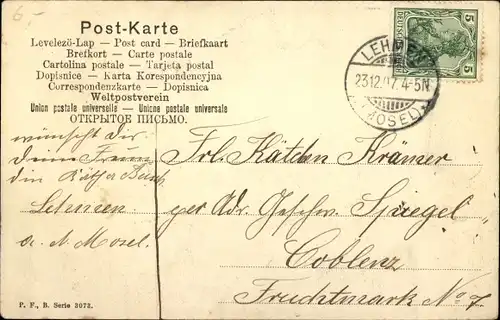 6.-
Post-Karte
Levelező-Lap — Post card — Briefkaart
Brefkort — Carte postale
Cartolina postale — Tarjeta postal
Dopisnice — Karta Korespondencyjna
Correspondenzkarte — Dopisnica
Weltpostverein
Union postale universelle — Unione postale universale
ОТКРЫТОЕ ПИСЬМО.
DEUTSCHES REICH
5 5
LEHMEN
23.12.07. 4-5N
(MOSEL)
wünscht Dir
Deine Freundin
Käthe
Lehmen
a. d. Mosel.
Frl. Kätchen Krämer
per Adr. Geschw. Spiegel
Coblenz
Fruchtmark No 7.
P. F., B. Serie 3073.